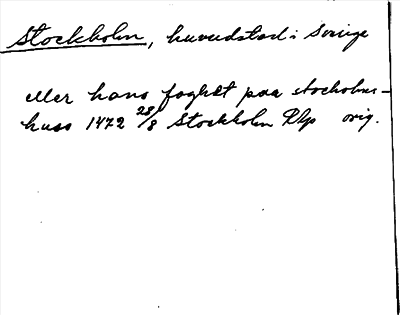 Stockholm, huvudstad i Sverige
eller hans foghet paa stocholms-
huss 1472 28/8 Stockholm Plp orig.